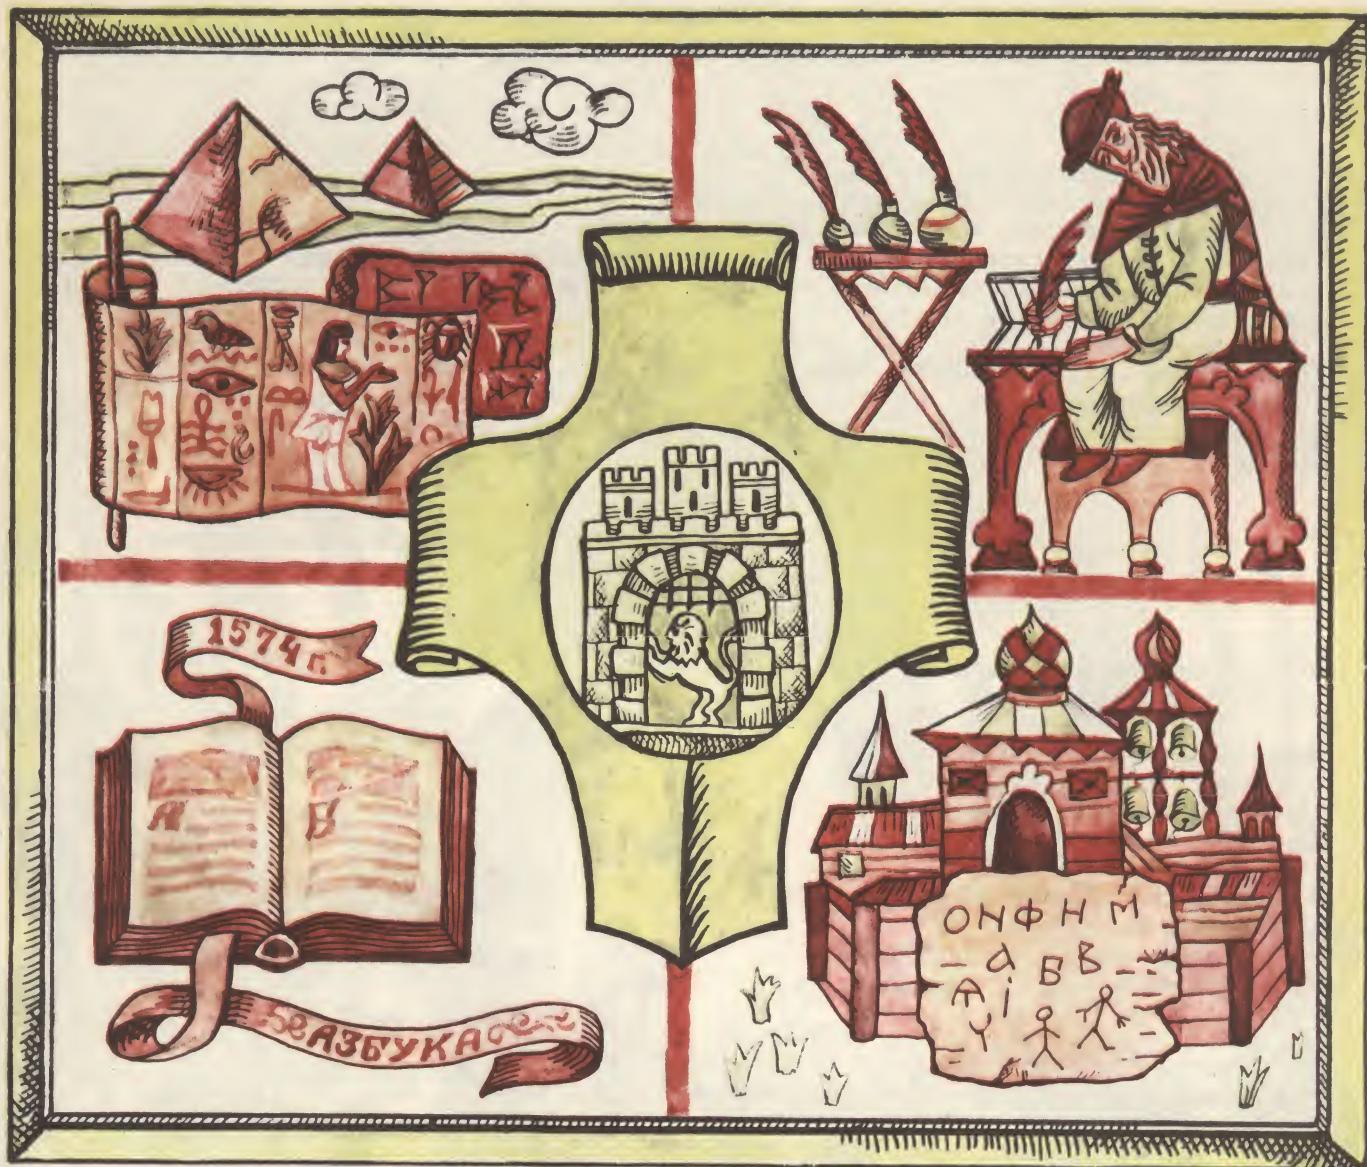 1574 г.
АЗБУКА
ОНФИМ
а Б В
А і
У